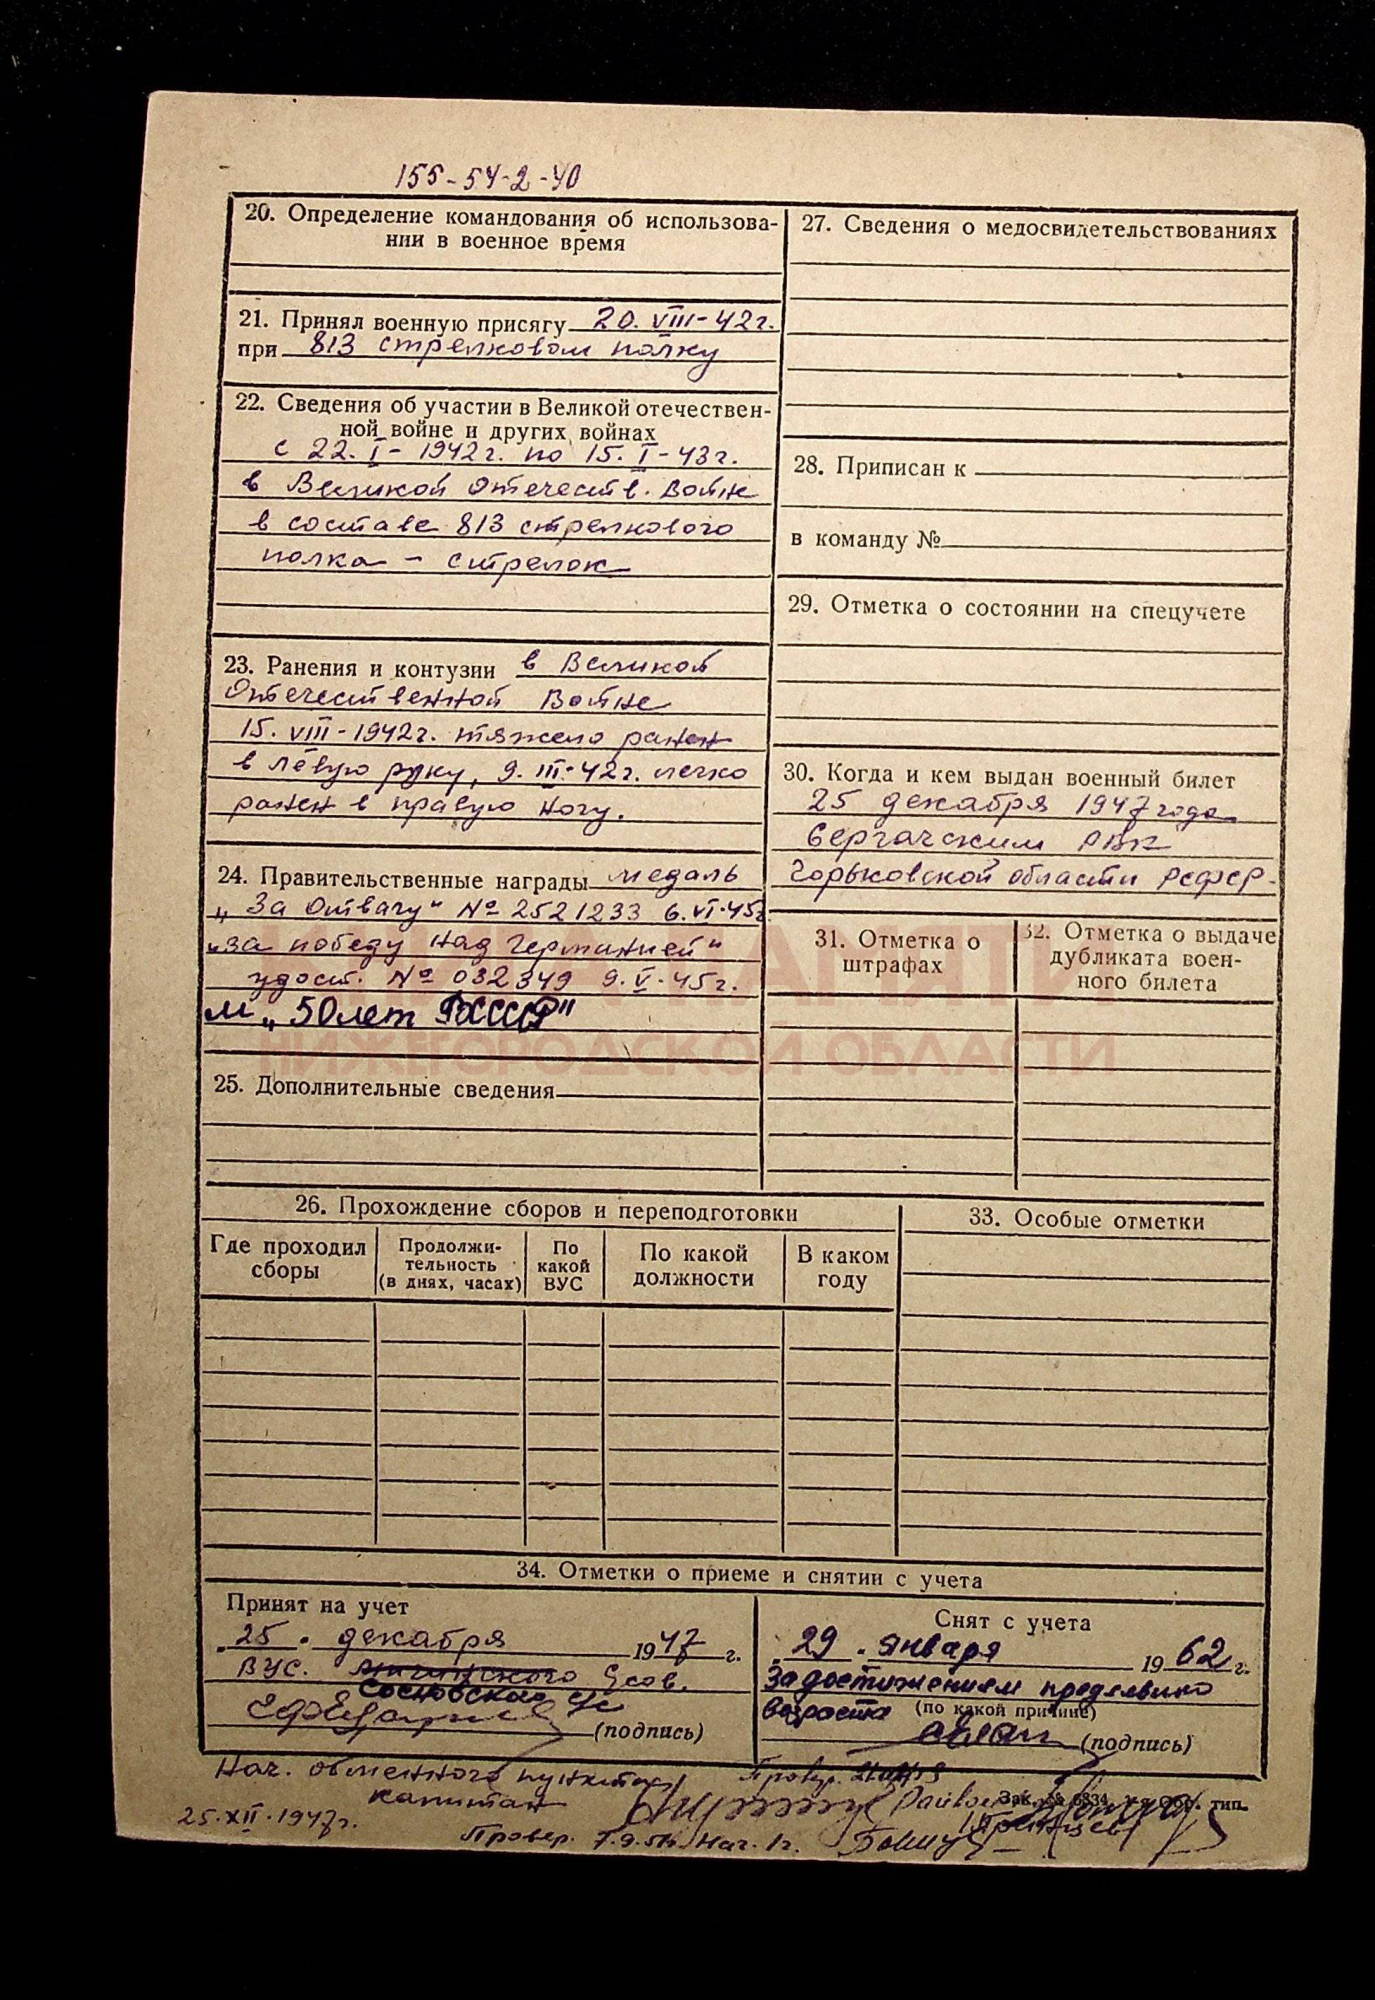 155-54-2-40
20. Определение командования об использова-
нии в военное время
21. Принял военную присягу 20. VIII-42г.
при 813 стрелковом полку
22. Сведения об участии в Великой отечествен-
ной войне и других войнах
с 22. I - 1942г. по 15. I - 43г.
в Великой Отечеств. Войне
в составе 813 стрелкового
полка - стрелок
23. Ранения и контузии в Великой
Отечественной Войне
15. VIII - 1942г. тяжело ранен
в левую руку, 9. III-42г. легко
ранен в правую ногу.
24. Правительственные награды медаль
„За Отвагу" № 2521233 6.VI-45г.
„За победу над Германией"
удост. № 032349 9.V-45г.
м „50 лет СССР"
25. Дополнительные сведения
27. Сведения о медосвидетельствованиях
28. Приписан к
в команду №
29. Отметка о состоянии на спецучете
30. Когда и кем выдан военный билет
25 декабря 1947 года
Сергачским РВК
Горьковской области РСФСР-
31. Отметка о
штрафах
32. Отметка о выдаче
дубликата воен-
ного билета
КНИГА ПАМЯТИ
НИЖЕГОРОДСКОЙ ОБЛАСТИ
26. Прохождение сборов и переподготовки
Где проходил
сборы
Продолжи-
тельность
(в днях, часах)
По
какой
ВУС
По какой
должности
В каком
году
33. Особые отметки
34. Отметки о приеме и снятии с учета
Принят на учет
„25" декабря 1947 г.
ВУС.
Сосновский с/с
(подпись)
Снят с учета
„29" января 1962 г.
За достижением предельного
возраста (по какой причине)
(подпись)
Нач. обменного пункта
капитан
25.XII-1947г.
Провер.
Зак. № 6834 тип.
Провер. Нач.